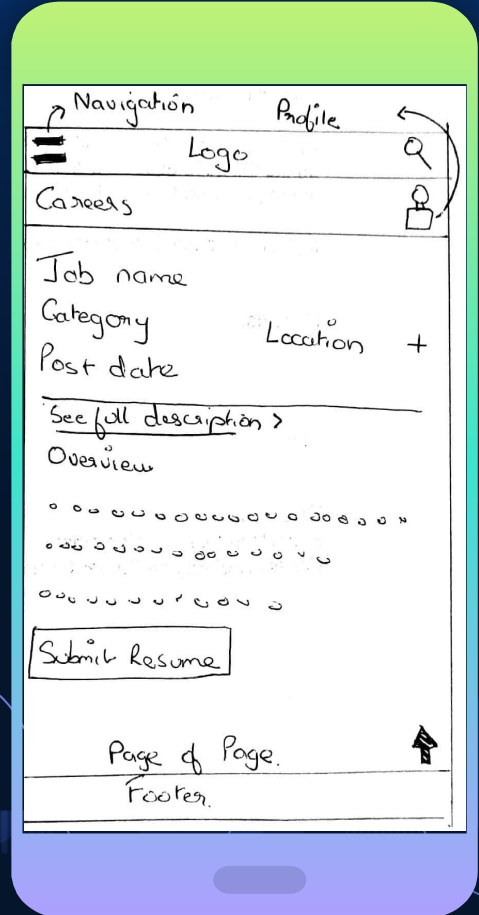 Navigation Profile
Logo
Careers
Job name
Category
Location +
Post date
See full description >
Overview
Submit Resume
Page of Page.
Footer.